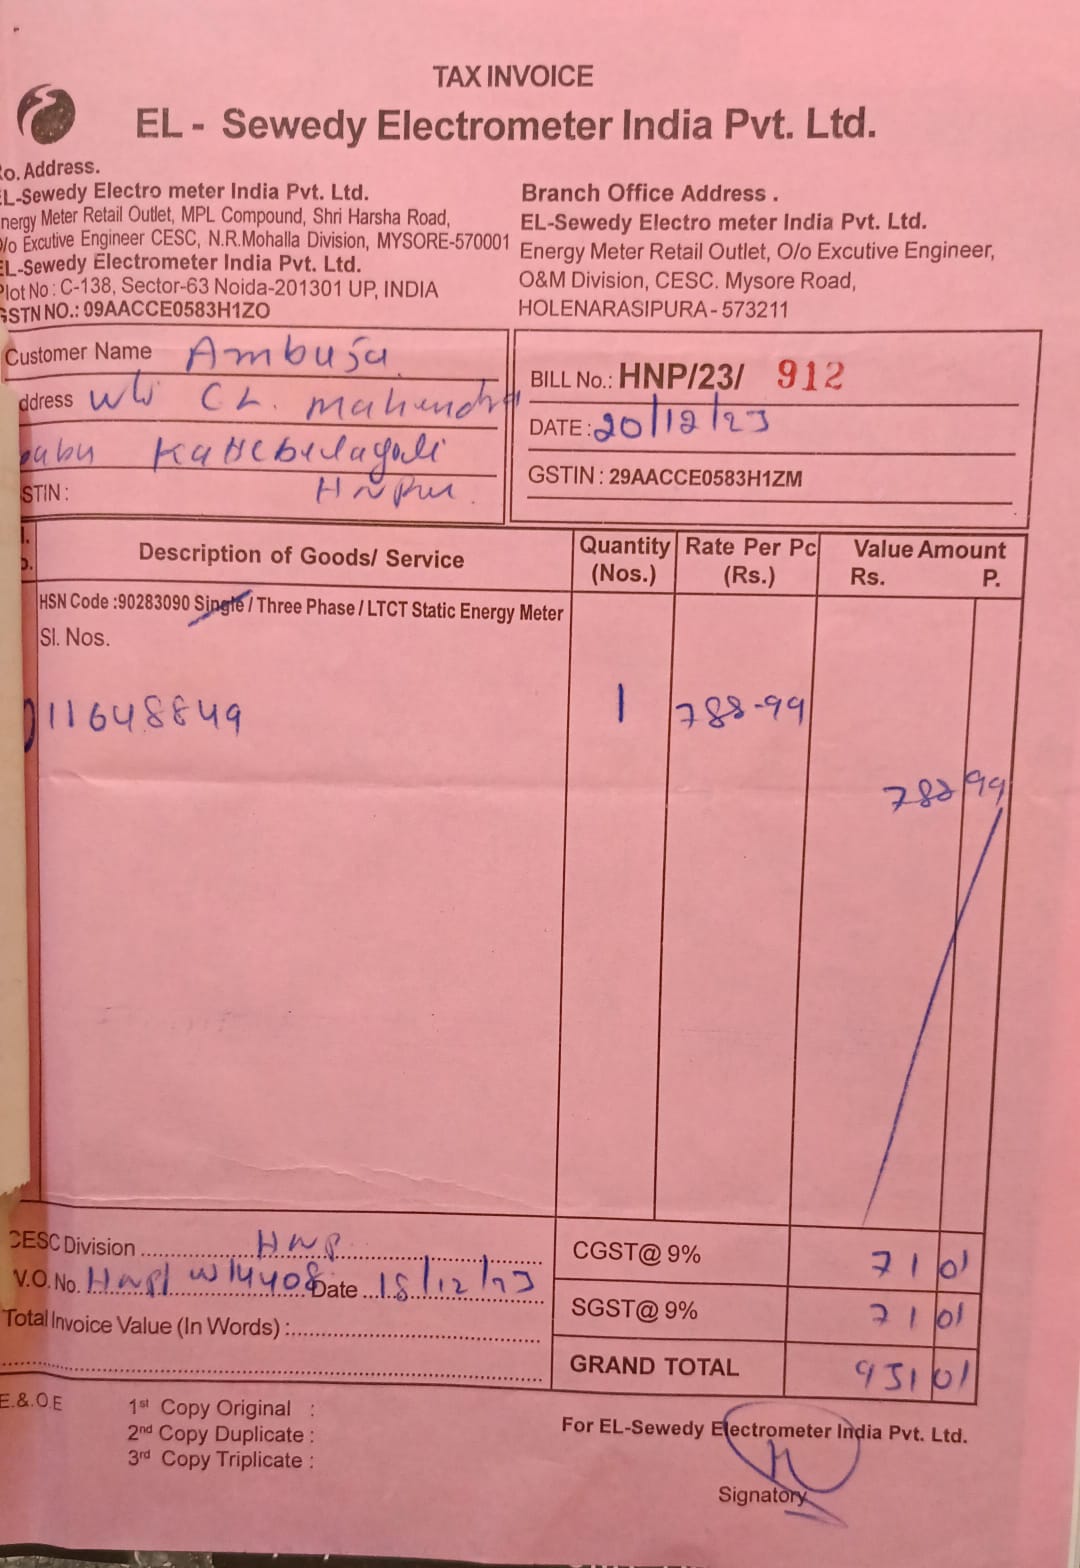 TAX INVOICE
EL - Sewedy Electrometer India Pvt. Ltd.
o. Address.
L-Sewedy Electro meter India Pvt. Ltd.
nergy Meter Retail Outlet, MPL Compound, Shri Harsha Road,
/o Excutive Engineer CESC, N.R.Mohalla Division, MYSORE-570001
EL-Sewedy Electrometer India Pvt. Ltd.
Plot No : C-138, Sector-63 Noida-201301 UP, INDIA
GSTN NO.: 09AACCE0583H1ZO
Branch Office Address .
EL-Sewedy Electro meter India Pvt. Ltd.
Energy Meter Retail Outlet, O/o Excutive Engineer,
O&M Division, CESC. Mysore Road,
HOLENARASIPURA - 573211
Customer Name Ambuja
ddress w/o C L. Mahendra
babu Kattebelaguli
STIN : HNPur
BILL No.: HNP/23/ 912
DATE : 20/12/23
GSTIN : 29AACCE0583H1ZM
Description of Goods/ Service Quantity (Nos.) Rate Per Pc (Rs.) Value Amount Rs. P.
HSN Code :90283090 Single / Three Phase / LTCT Static Energy Meter
Sl. Nos.
11648849 1 788-99
788 99
CESC Division HNP
V.O. No. Hnp/ W14408 Date 18/12/23
Total Invoice Value (In Words) :
CGST@ 9% 71 01
SGST@ 9% 71 01
GRAND TOTAL 931 01
E.&.O E
1st Copy Original :
2nd Copy Duplicate :
3rd Copy Triplicate :
For EL-Sewedy Electrometer India Pvt. Ltd.
Signatory